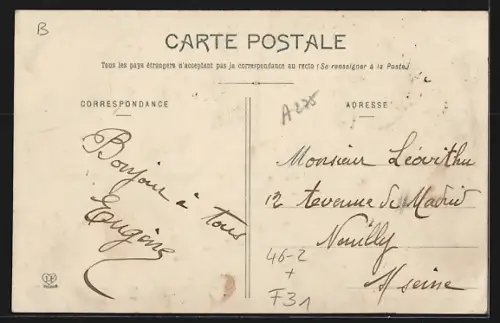 B
CARTE POSTALE
Tous les pays étrangers n'acceptant pas la correspondance au recto (Se renseigner à la Poste)
CORRESPONDANCE
Bonjour à tous
Eugène
ADRESSE
A275
Monsieur
12 avenue de Madrid
Neuilly
s/seine
46-2
+
F31